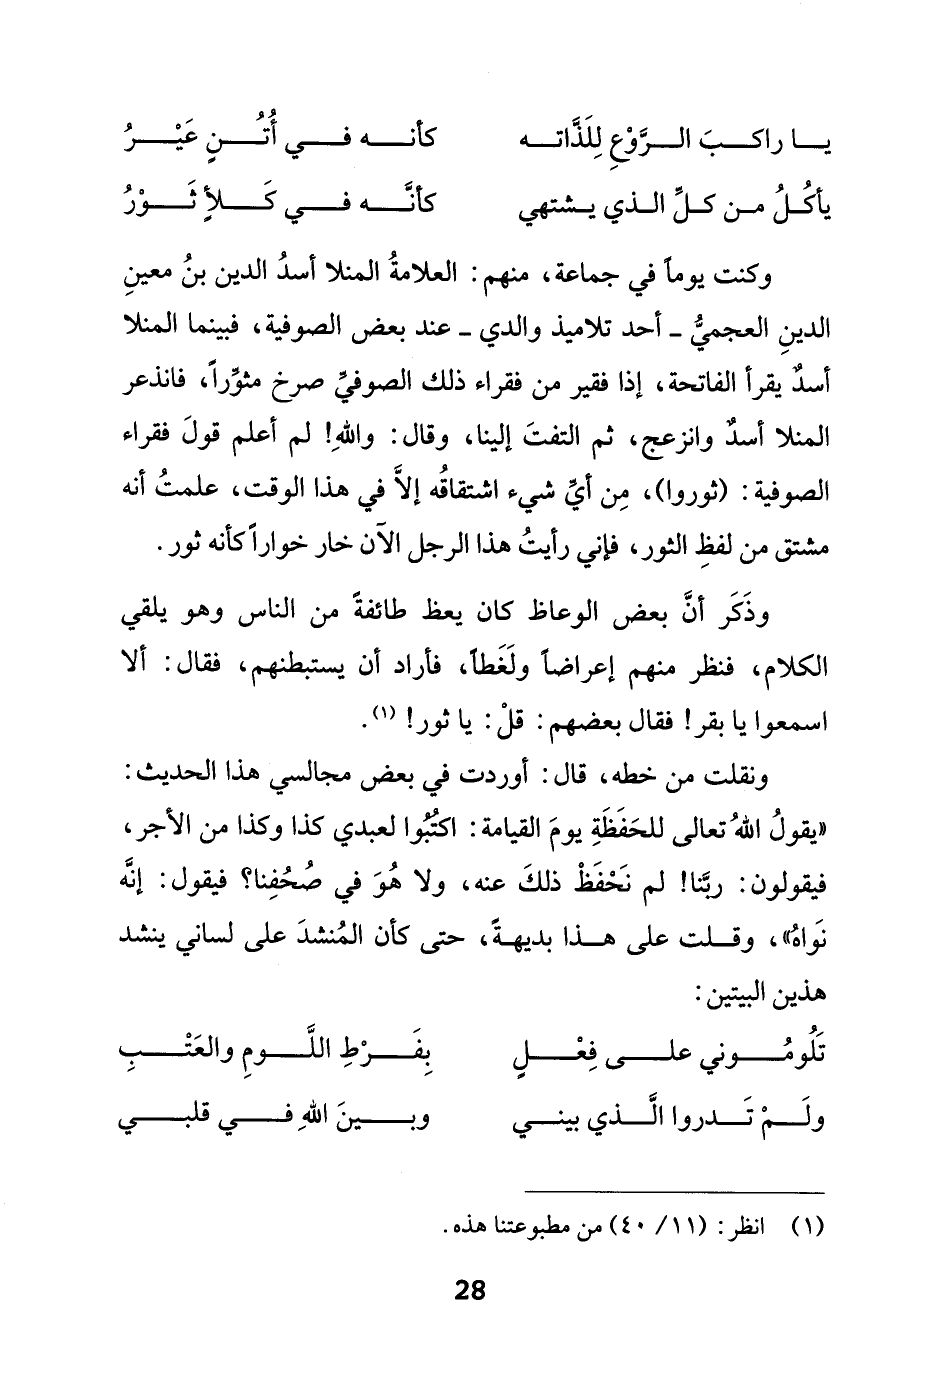 يا راكبَ الرَّوْعِ لِلَذَّاته كأنه في أُتُنٍ عَيْرُ
يأكُلُ من كلِّ الذي يشتهي كأنَّه في كَلأٍ ثَوْرُ
وكنت يوماً في جماعة، منهم: العلامةُ المنلا أسدُ الدين بنُ معينِ
الدينِ العجميُّ ـ أحد تلاميذ والدي ـ عند بعض الصوفية، فبينما المنلا
أسدٌ يقرأ الفاتحة، إذا فقير من فقراء ذلك الصوفيِّ صرخ مثوِّراً، فانذعر
المنلا أسدٌ وانزعج، ثم التفتَ إلينا، وقال: واللهِ! لم أعلم قولَ فقراء
الصوفية: (ثوروا)، مِن أيِّ شيء اشتقاقُه إلاَّ في هذا الوقت، علمتُ أنه
مشتق من لفظِ الثور، فإني رأيتُ هذا الرجل الآن خار خواراً كأنه ثور.
وذَكَر أنَّ بعض الوعاظ كان يعظ طائفةً من الناس وهو يلقي
الكلام، فنظر منهم إعراضاً ولَغَطاً، فأراد أن يستبطنهم، فقال: ألا
اسمعوا يا بقر! فقال بعضهم: قلْ: يا ثور! (١).
ونقلت من خطه، قال: أوردت في بعض مجالسي هذا الحديث:
«يقولُ اللهُ تعالى للحَفَظَةِ يومَ القيامة: اكتُبُوا لعبدي كذا وكذا من الأجر،
فيقولون: ربَّنا! لم نَحْفَظْ ذلكَ عنه، ولا هُوَ في صُحُفِنا؟ فيقول: إنَّه
نَواهُ»، وقلت على هذا بديهةً، حتى كأن المُنشدَ على لساني ينشد
هذين البيتين:
تَلُومُوني على فِعْلٍ بِفَرْطِ اللَّومِ والعَتْبِ
ولَمْ تَدروا الَّذي بيني وبينَ اللهِ في قلبي
(١) انظر: (١١/ ٤٠) من مطبوعتنا هذه.
28